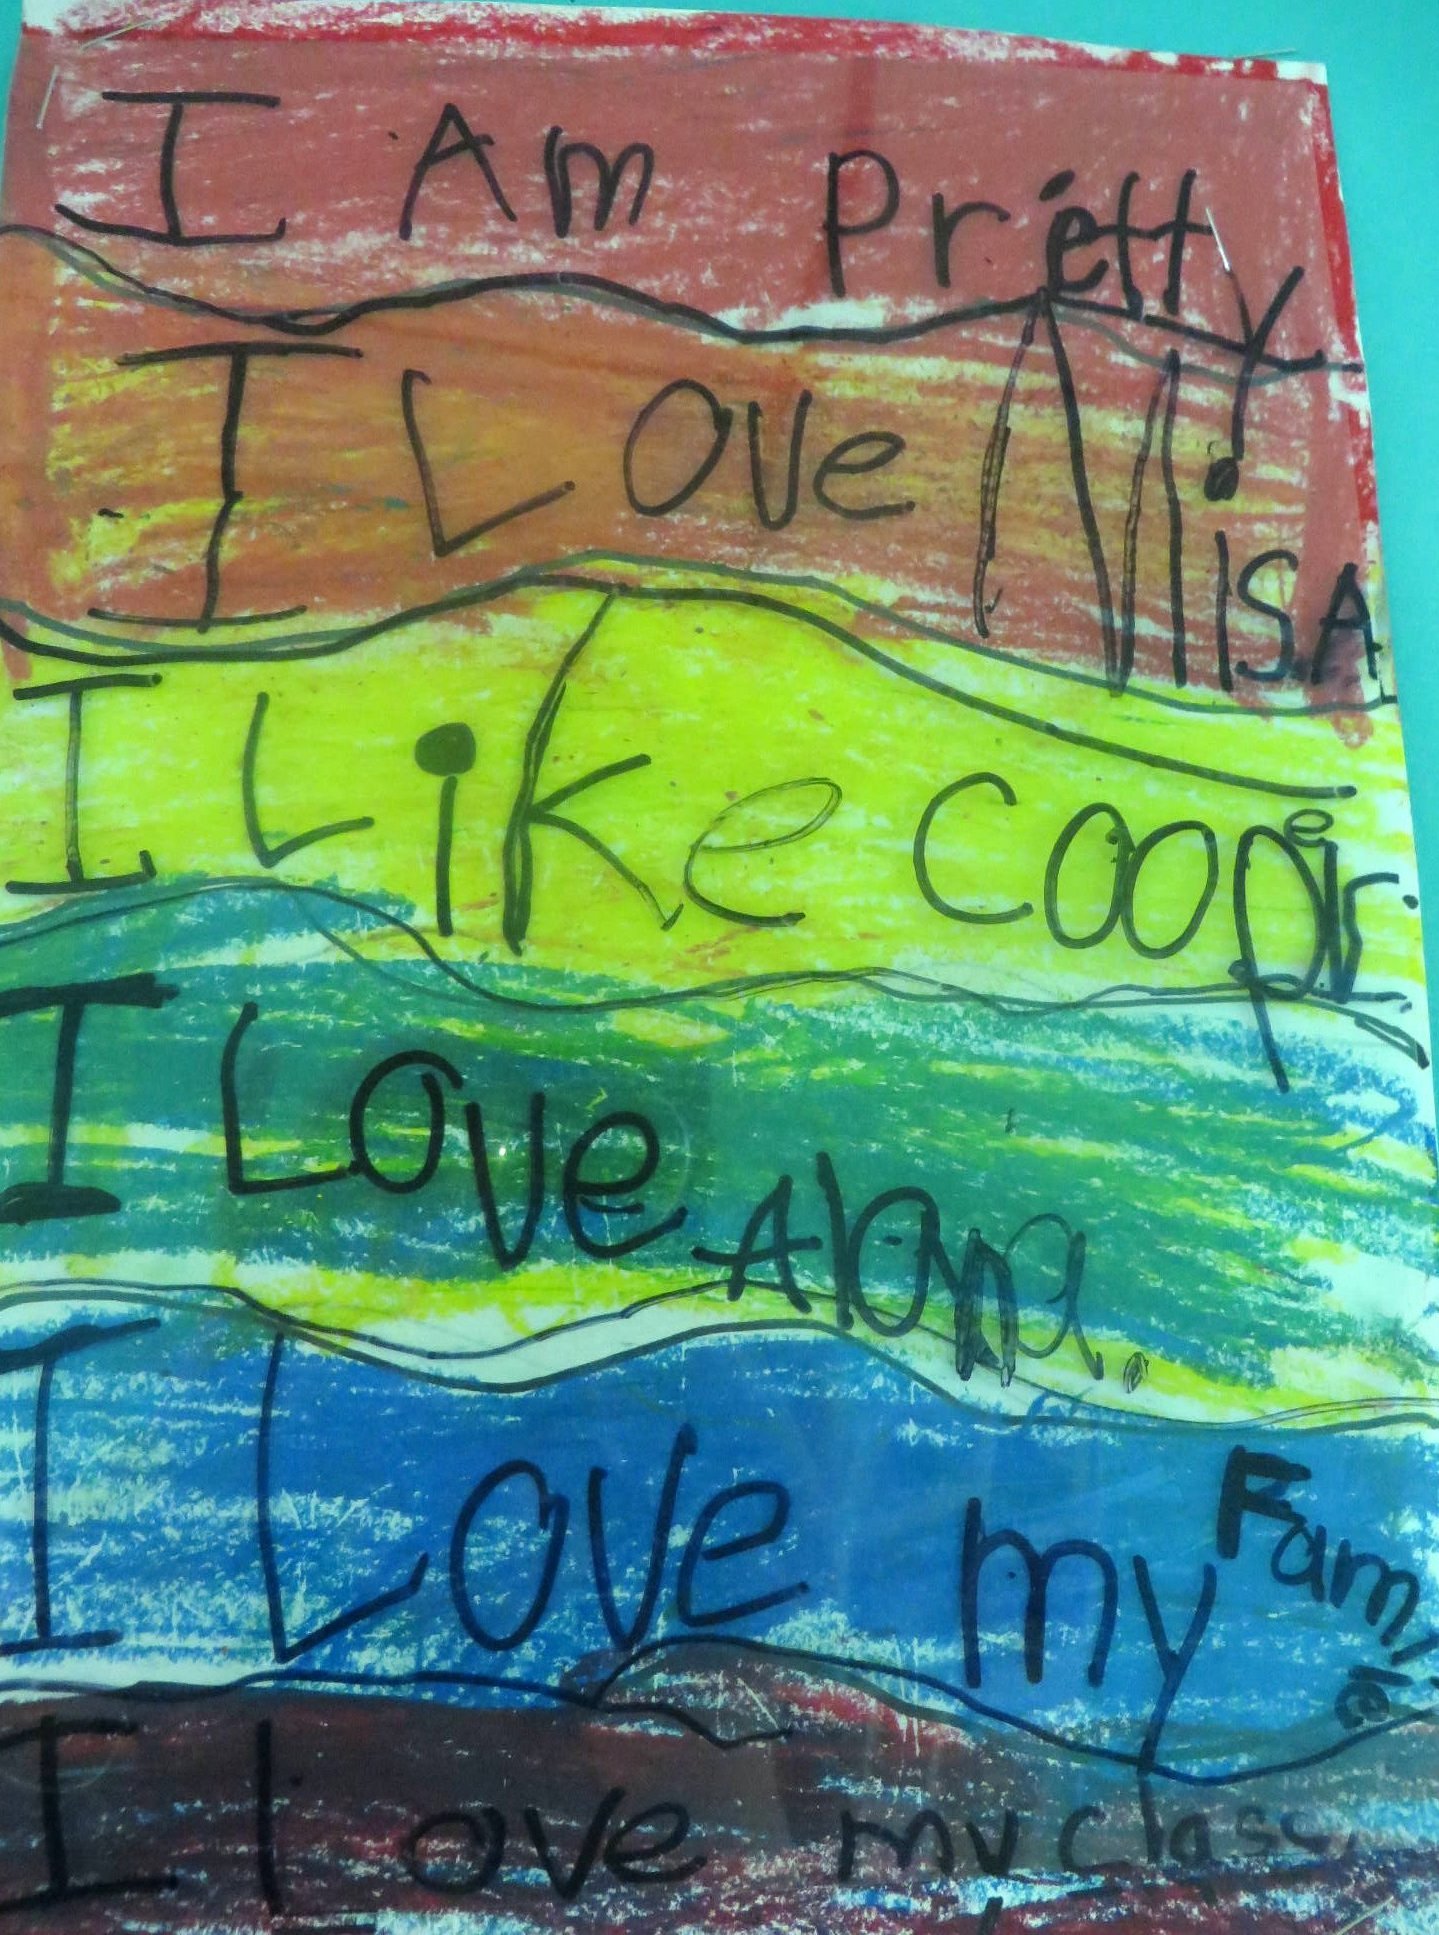 I Am Pretty
I Love NISA
I Like Cooper.
I Love Alona.
I Love my Fam
I Love my class